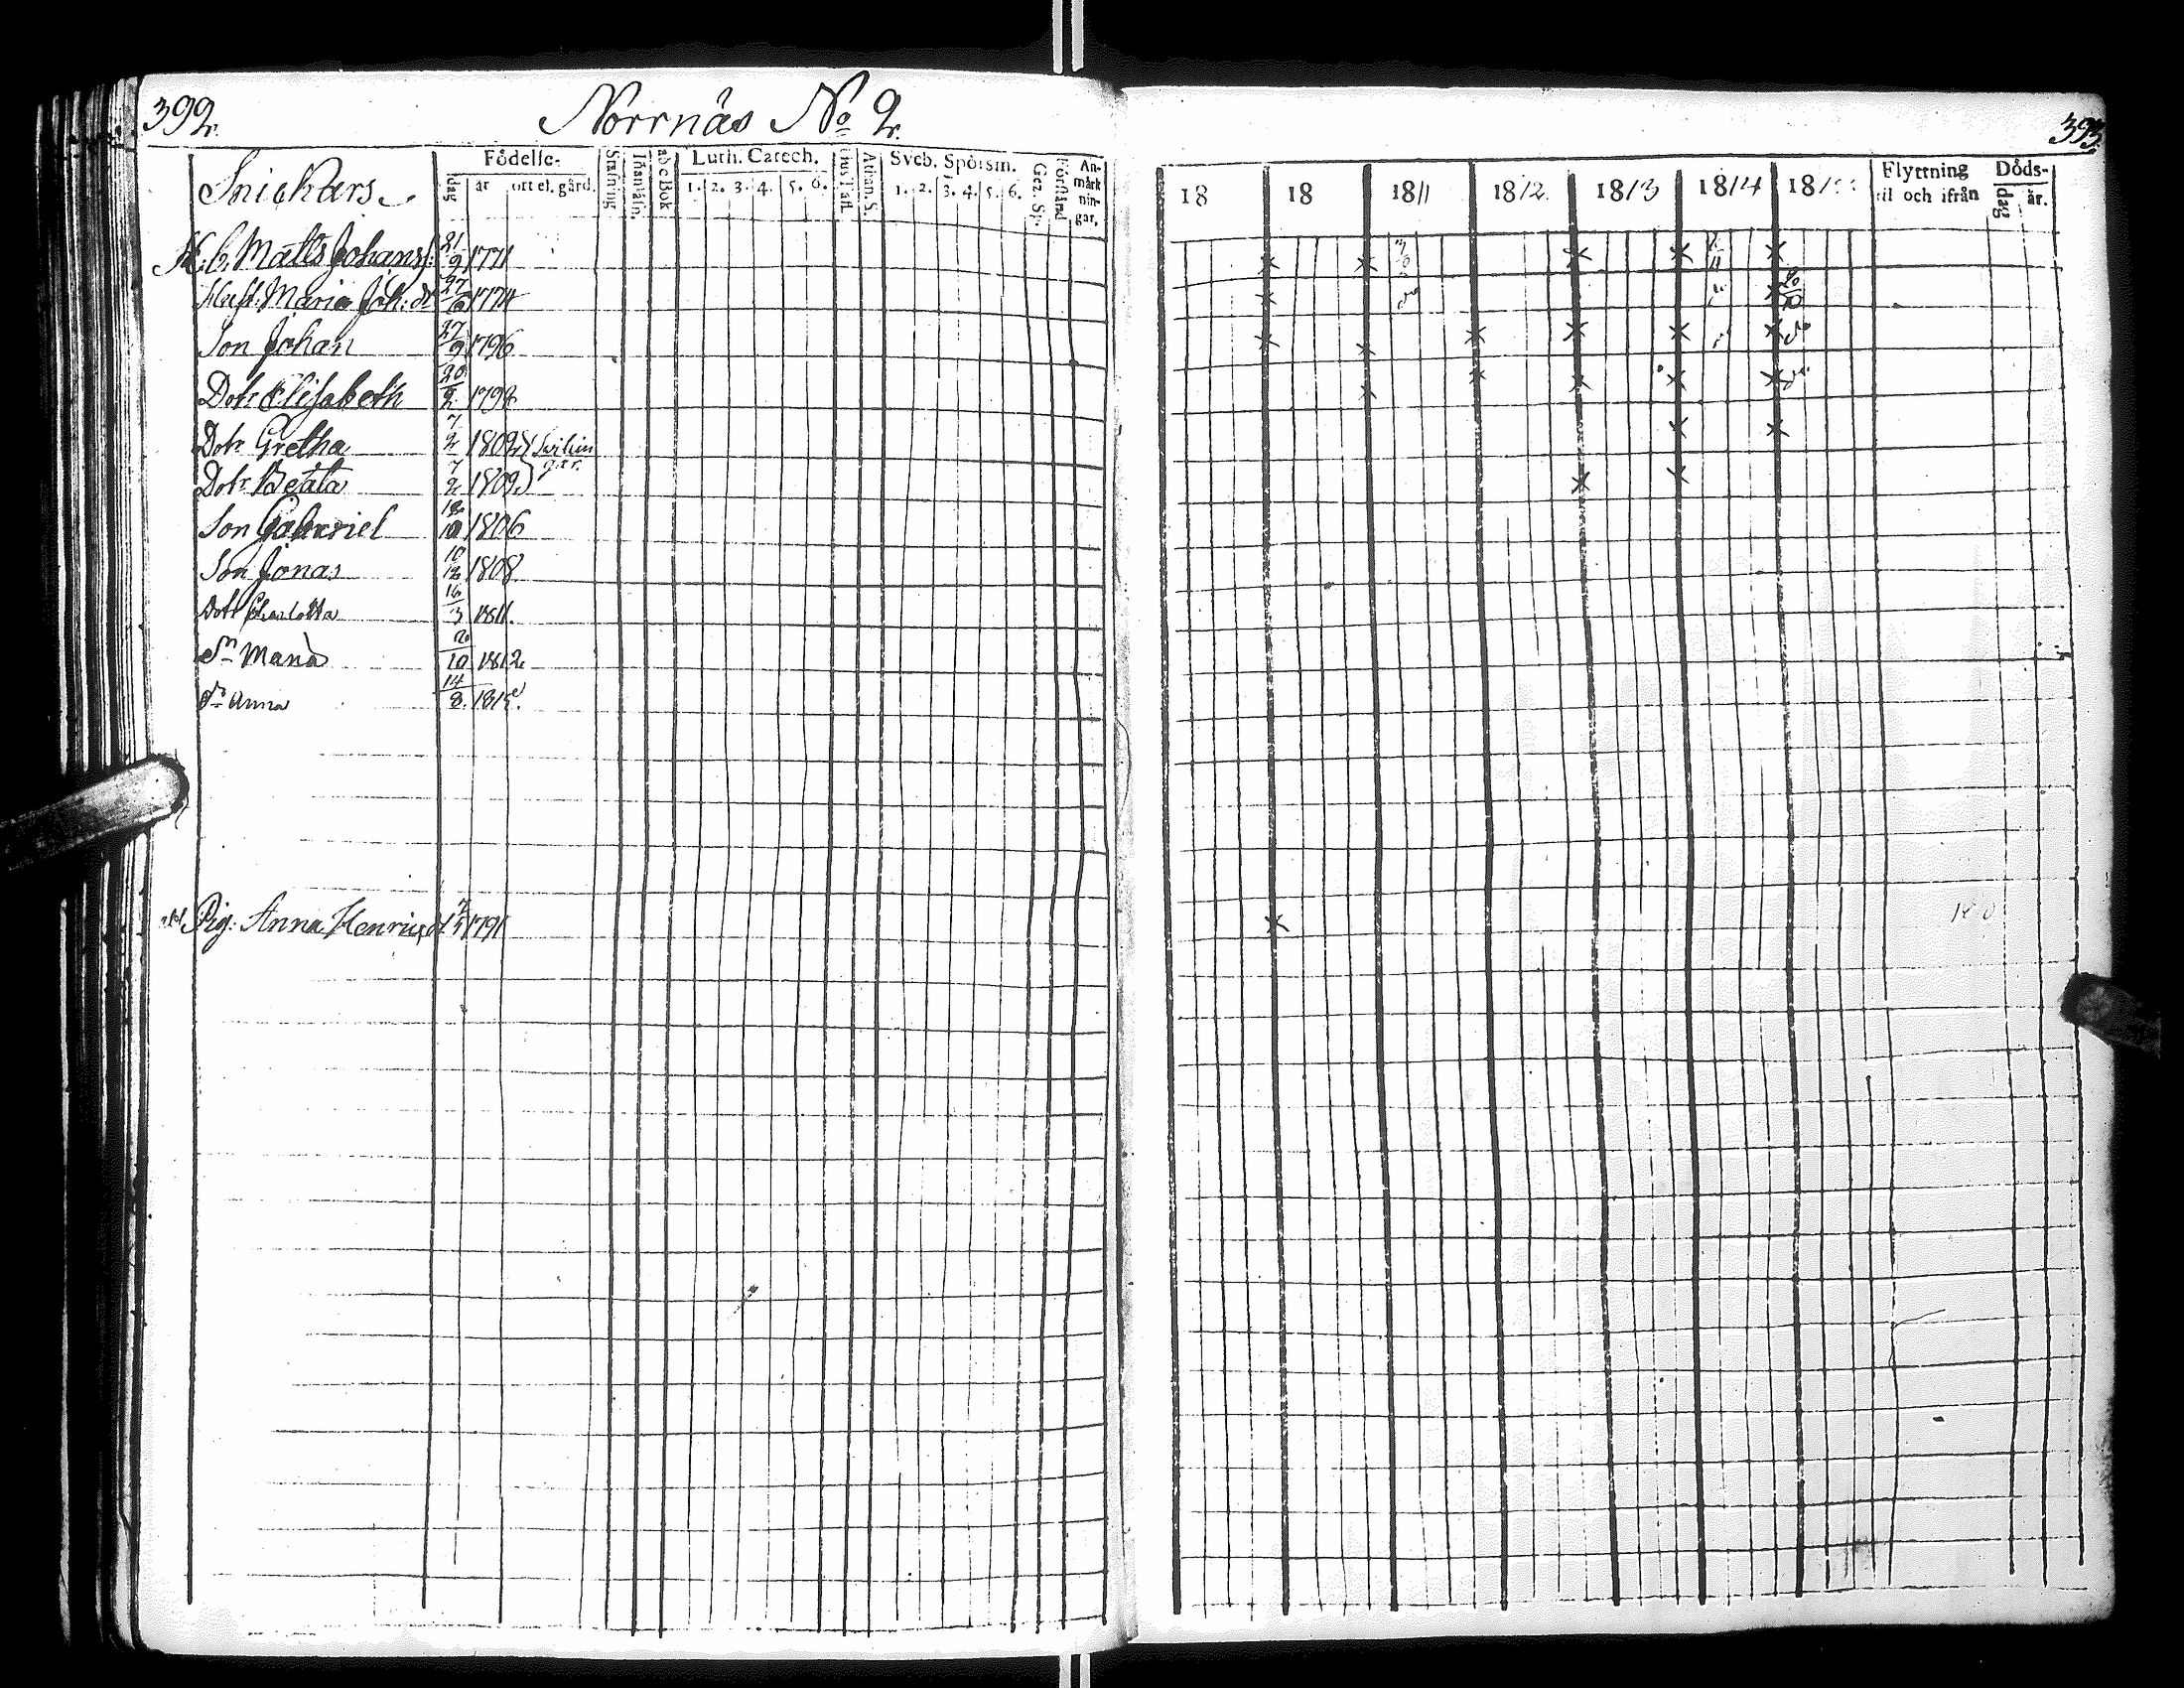 392.
Norrnäs No 2.
Snickars
Födelse-
dag
år
ort el. gård.
Stafning
Innanläsn.
abc Bok
Luth. Catech.
1. 2. 3. 4. 5. 6.
Hus Tafl.
Athan. S.
Sveb. Spörsm.
1. 2. 3. 4. 5. 6.
Gez. Sp.
Förstånd
An-
märk
nin-
gar.
H. b. Matts Johanss: 21/9 1771
Hust: Maria Joh: dr 27/6 1774
Son Johan 27/9 1796
Dotr Elisabeth 20/2 1798
Dotr Gretha 7/2 1802
Dotr Beata 7/2 1802
Son Gabriel 18/10 1806
Son Jonas 10/12 1808
Dotr Charlotta 16/3 1811.
Sn 10 1812
dr Anna 14/8 1815.
Pig: Anna Henricsdr 1791
393.
18
18
1811
1812
1813
1814
18
Flyttning
til och ifrån
Döds-
dag
år.